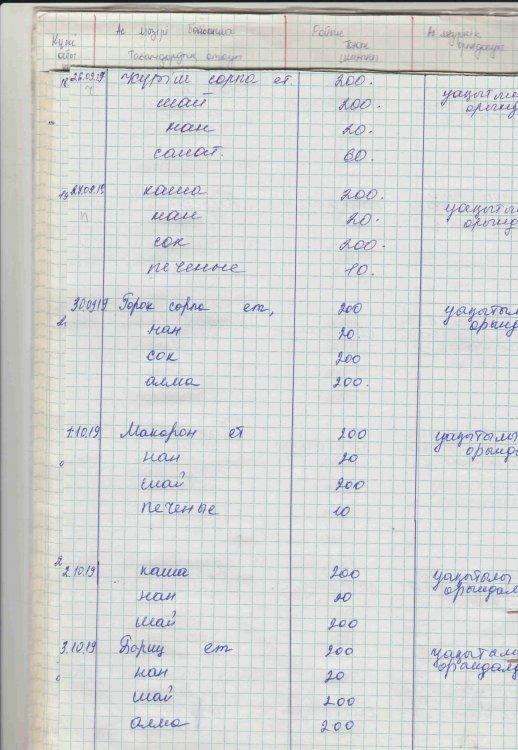 Күні Ас мәзірі бойынша
айы Тағамдардың атауы
26.09.19 күрыш сорпа ет 200. уақытылы
шай 200. орынд
нан 20.
салат. 60.
27.09.19 каша 200. уақытылы
нан 20. орынд
сок 200.
печенье 10.
30.09.19 Горох сорпа ет, 200 уақытылы
нан 20. орынд
сок 200
алма 200.
1.10.19 Макарон ет 200 уақытылы
нан 20 орынд
шай 200
печенье 10
2.10.19 каша 200 уақытылы
нан 20 орындал
шай 200
3.10.19 Борщ ет 200 уақытылы
нан 20 орындалд
шай 200
алма 200